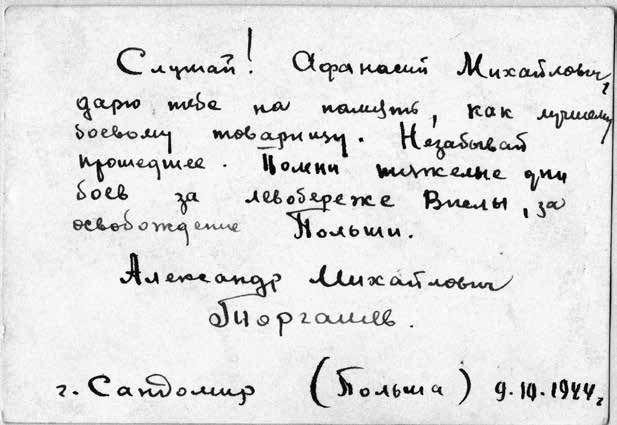 Слушай! Афанасий Михайлович,
дарю тебе на память, как лучшему
боевому товарищу. Незабывай
прошедшее. Помни тяжелые дни
боев за левобереже Вислы, за
освобождение Польши.
Александр Михайлович
Тюргашев.
г. Сандомир (Польша) 9.10.1944 г.